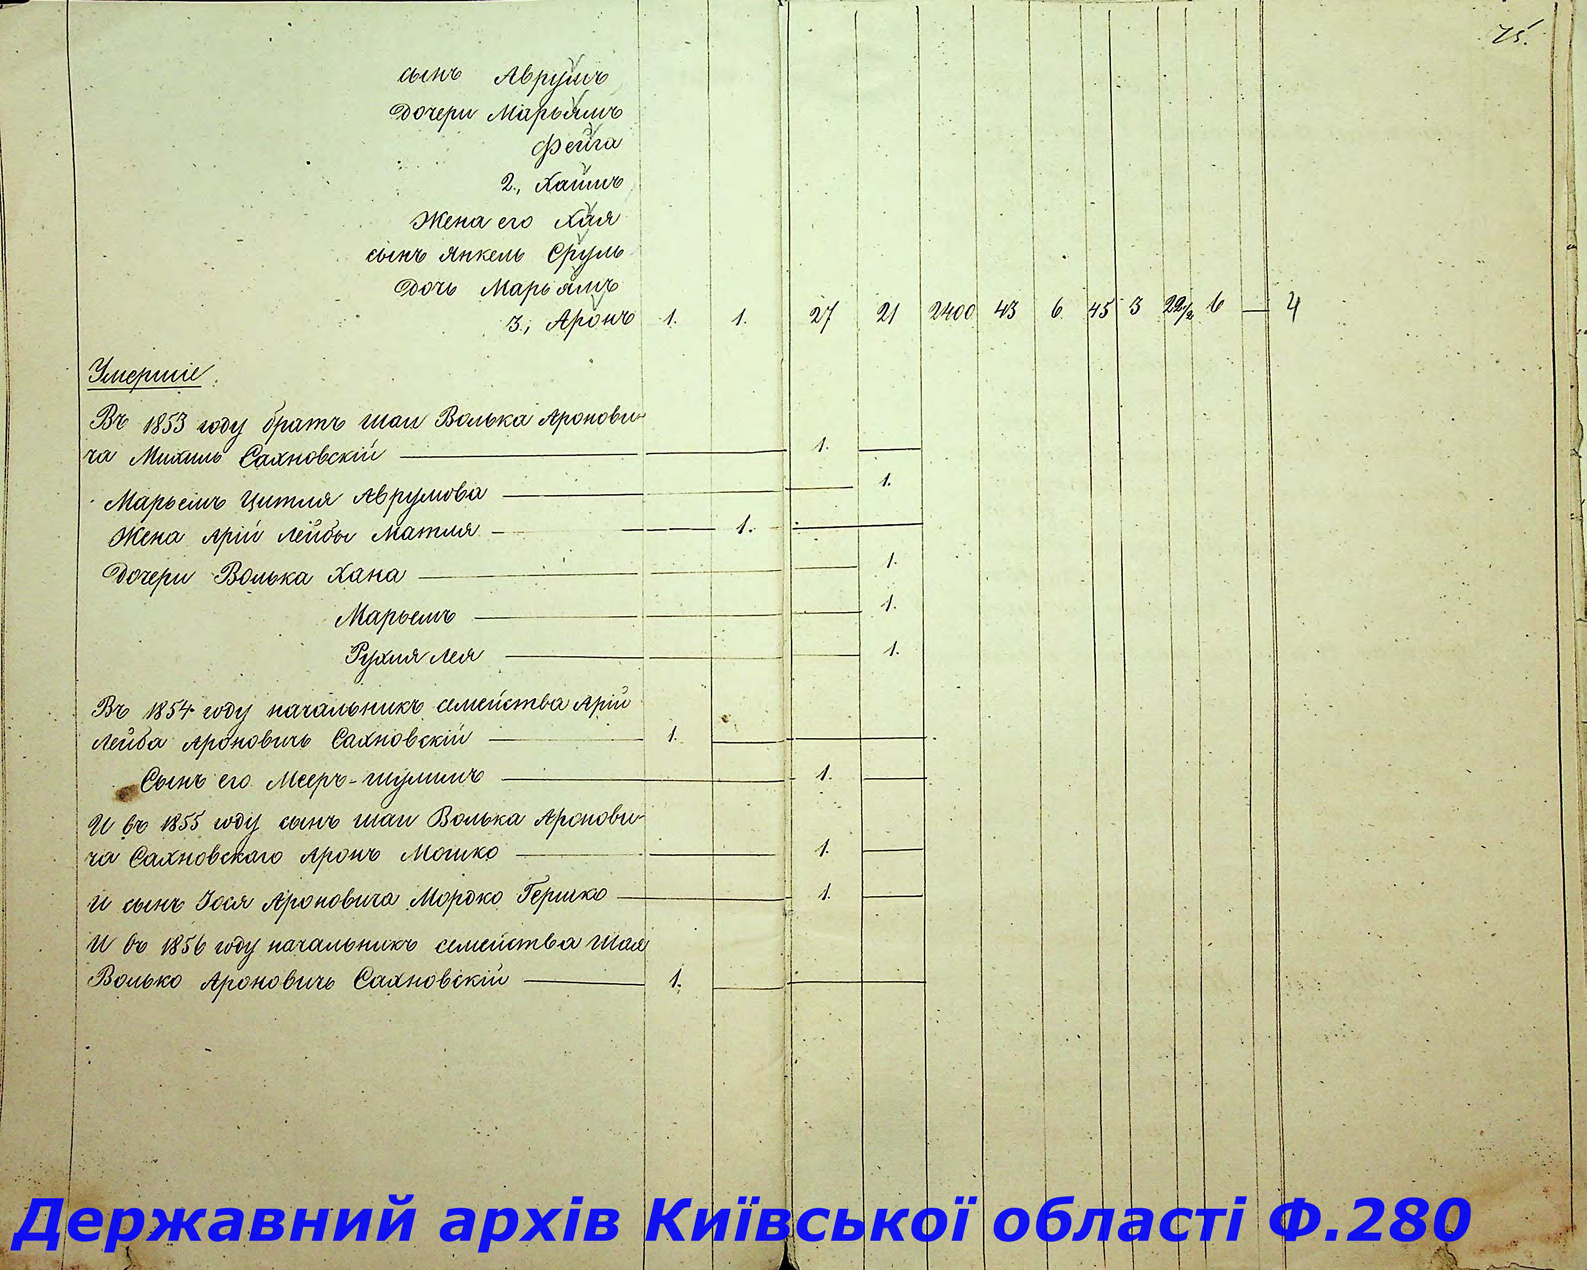 75.
сынъ Аврумъ
Дочери Марьямъ
Фейга
2., Хаимъ
Жена его Хая
сынъ Янкель Сруль
Дочь Марьямъ
3., Аронъ 1. 1. 27 21 2400 43 6 45 3 22½ 6 — 4
Умершіе.
Въ 1853 году братъ Шаи Волька Аронови-
ча Михель Сахновскій — 1. —
Марьемъ Цитля Аврумова — 1.
Жена Арій Лейбы Матля — 1. —
Дочери Волька Хана — 1.
Марьемъ — 1.
Рухля Лея — 1.
Въ 1854 году начальникъ семейства Арій
Лейба Ароновичъ Сахновскій — 1. —
Сынъ его Мееръ-Шулимъ — 1. —
И въ 1855 году сынъ Шаи Волька Аронови-
ча Сахновскаго Аронъ Мошко — 1. —
и сынъ Іося Ароновича Мордко Гершко — 1. —
И въ 1856 году начальникъ семейства Шая
Волько Ароновичъ Сахновскій — 1. —
Державний архів Київської області Ф.280